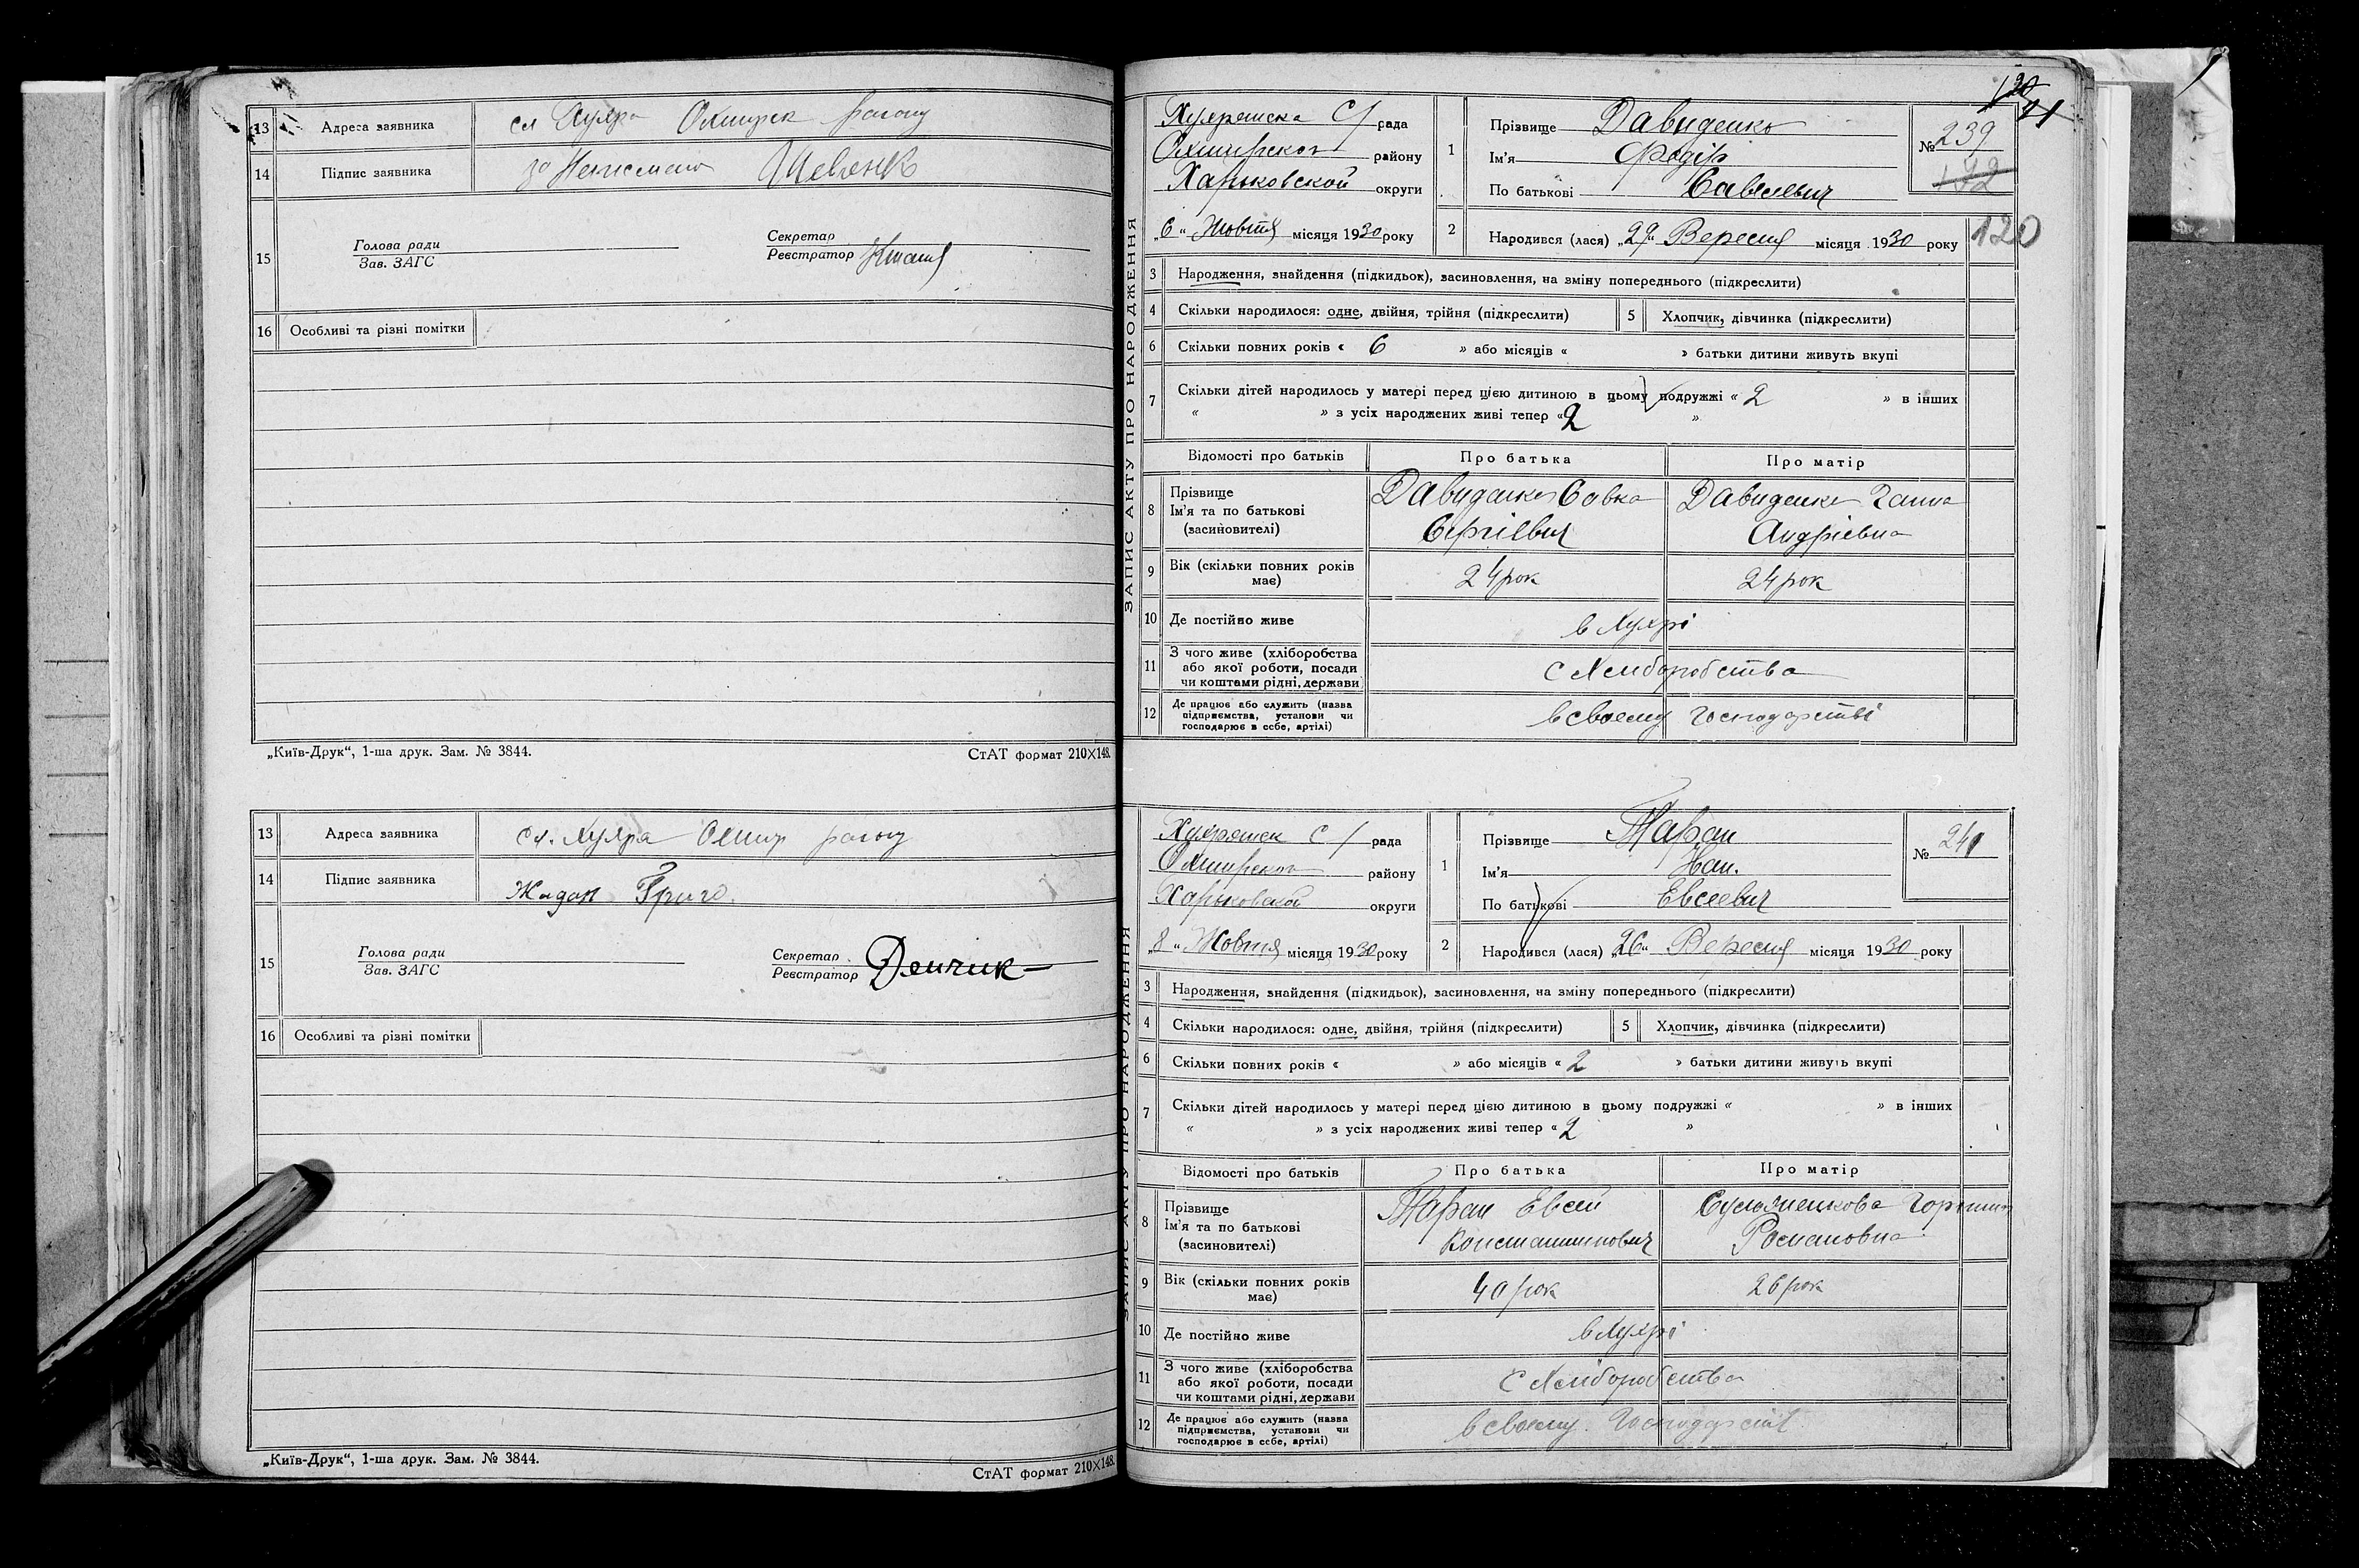 13 Адреса заявника сл Хухра Охтирск району
14 Підпис заявника за Неписмено Шевченко
15 Голова ради Зав. ЗАГС Секретар Реєстратор
16 Особливі та різні помітки
„Київ-Друк“, 1-ша друк. Зам. № 3844. СтАТ формат 210×148.
13 Адреса заявника сл. Хухра Охтир району
14 Підпис заявника Жадан Григо
15 Голова ради Зав. ЗАГС Секретар Реєстратор Демчик
16 Особливі та різні помітки
„Київ-Друк“, 1-ша друк. Зам. № 3844. СтАТ формат 210×148.
ЗАПИС АКТУ ПРО НАРОДЖЕННЯ
Хухрянска С/ рада
Охтирского району
Харьковской округи
„6“ Жовтня місяця 1930 року
1 Прізвище Давиденко
Ім'я Федір
По батькові Савелевич
№ 239
132
120
2 Народився (лася) „29“ Вересня місяця 1930 року
3 Народження, знайдення (підкидьок), засиновлення, на зміну попереднього (підкреслити)
4 Скільки народилося: одне, двійня, трійня (підкреслити) 5 Хлопчик, дівчинка (підкреслити)
6 Скільки повних років « 6 » або місяців « » батьки дитини живуть вкупі
7 Скільки дітей народилось у матері перед цією дитиною в цьому подружжі « 2 » в інших
« » з усіх народжених живі тепер « 2 »
Відомості про батьків Про батька Про матір
8 Прізвище Ім'я та по батькові (засиновителі) Давиденко Савка Сергіевич Давиденко Ганна Андріевна
9 Вік (скільки повних років має) 24 рок 24 рок
10 Де постійно живе в Хухрі
11 З чого живе (хліборобства або якої роботи, посади чи коштами рідні, держави с Хлиборобства
12 Де працює або служить (назва підприємства, установи чи господарює в себе, артілі) в своему господарстві
ЗАПИС АКТУ ПРО НАРОДЖЕННЯ
Хухрянск С/ рада
Охтирского району
Харьковской округи
„8“ Жовтня місяця 1930 року
1 Прізвище Таран
Ім'я Иван.
По батькові Евсеевич
№ 241
2 Народився (лася) „26“ Вересня місяця 1930 року
3 Народження, знайдення (підкидьок), засиновлення, на зміну попереднього (підкреслити)
4 Скільки народилося: одне, двійня, трійня (підкреслити) 5 Хлопчик, дівчинка (підкреслити)
6 Скільки повних років « » або місяців « 2 » батьки дитини живуть вкупі
7 Скільки дітей народилось у матері перед цією дитиною в цьому подружжі « » в інших
« » з усіх народжених живі тепер « 2 »
Відомості про батьків Про батька Про матір
8 Прізвище Ім'я та по батькові (засиновителі) Таран Евсей Константинович Романовна
9 Вік (скільки повних років має) 40 рок 26 рок
10 Де постійно живе в Хухрі
11 З чого живе (хліборобства або якої роботи, посади чи коштами рідні, держави с Хлиборобства
12 Де працює або служить (назва підприємства, установи чи господарює в себе, артілі) в своему господарстві